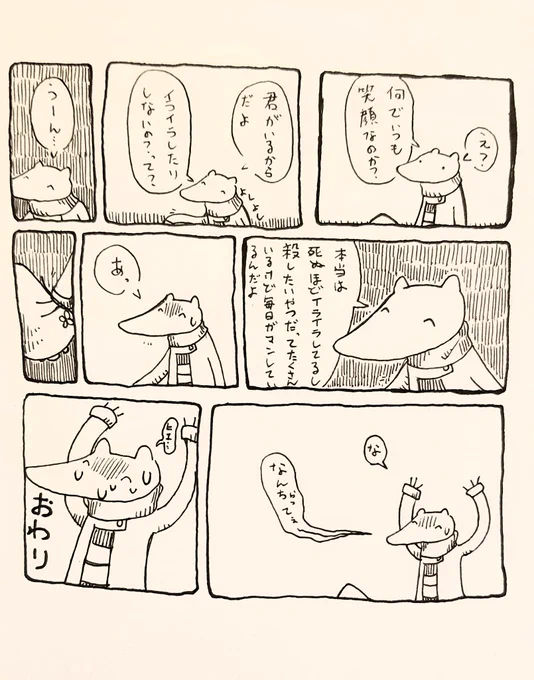 え?
何でいつも
笑顔なのか?
君がいるから
だよ
よしよし
イライラしたり
しないの?って?
うーん…
本当は
死ぬほどイライラしてるし
殺したいやつだってたくさん
いるけど毎日ガマンしてい
るんだよ
あ、
な
なんちゃ
ってぇ
ヒェ…
おわり